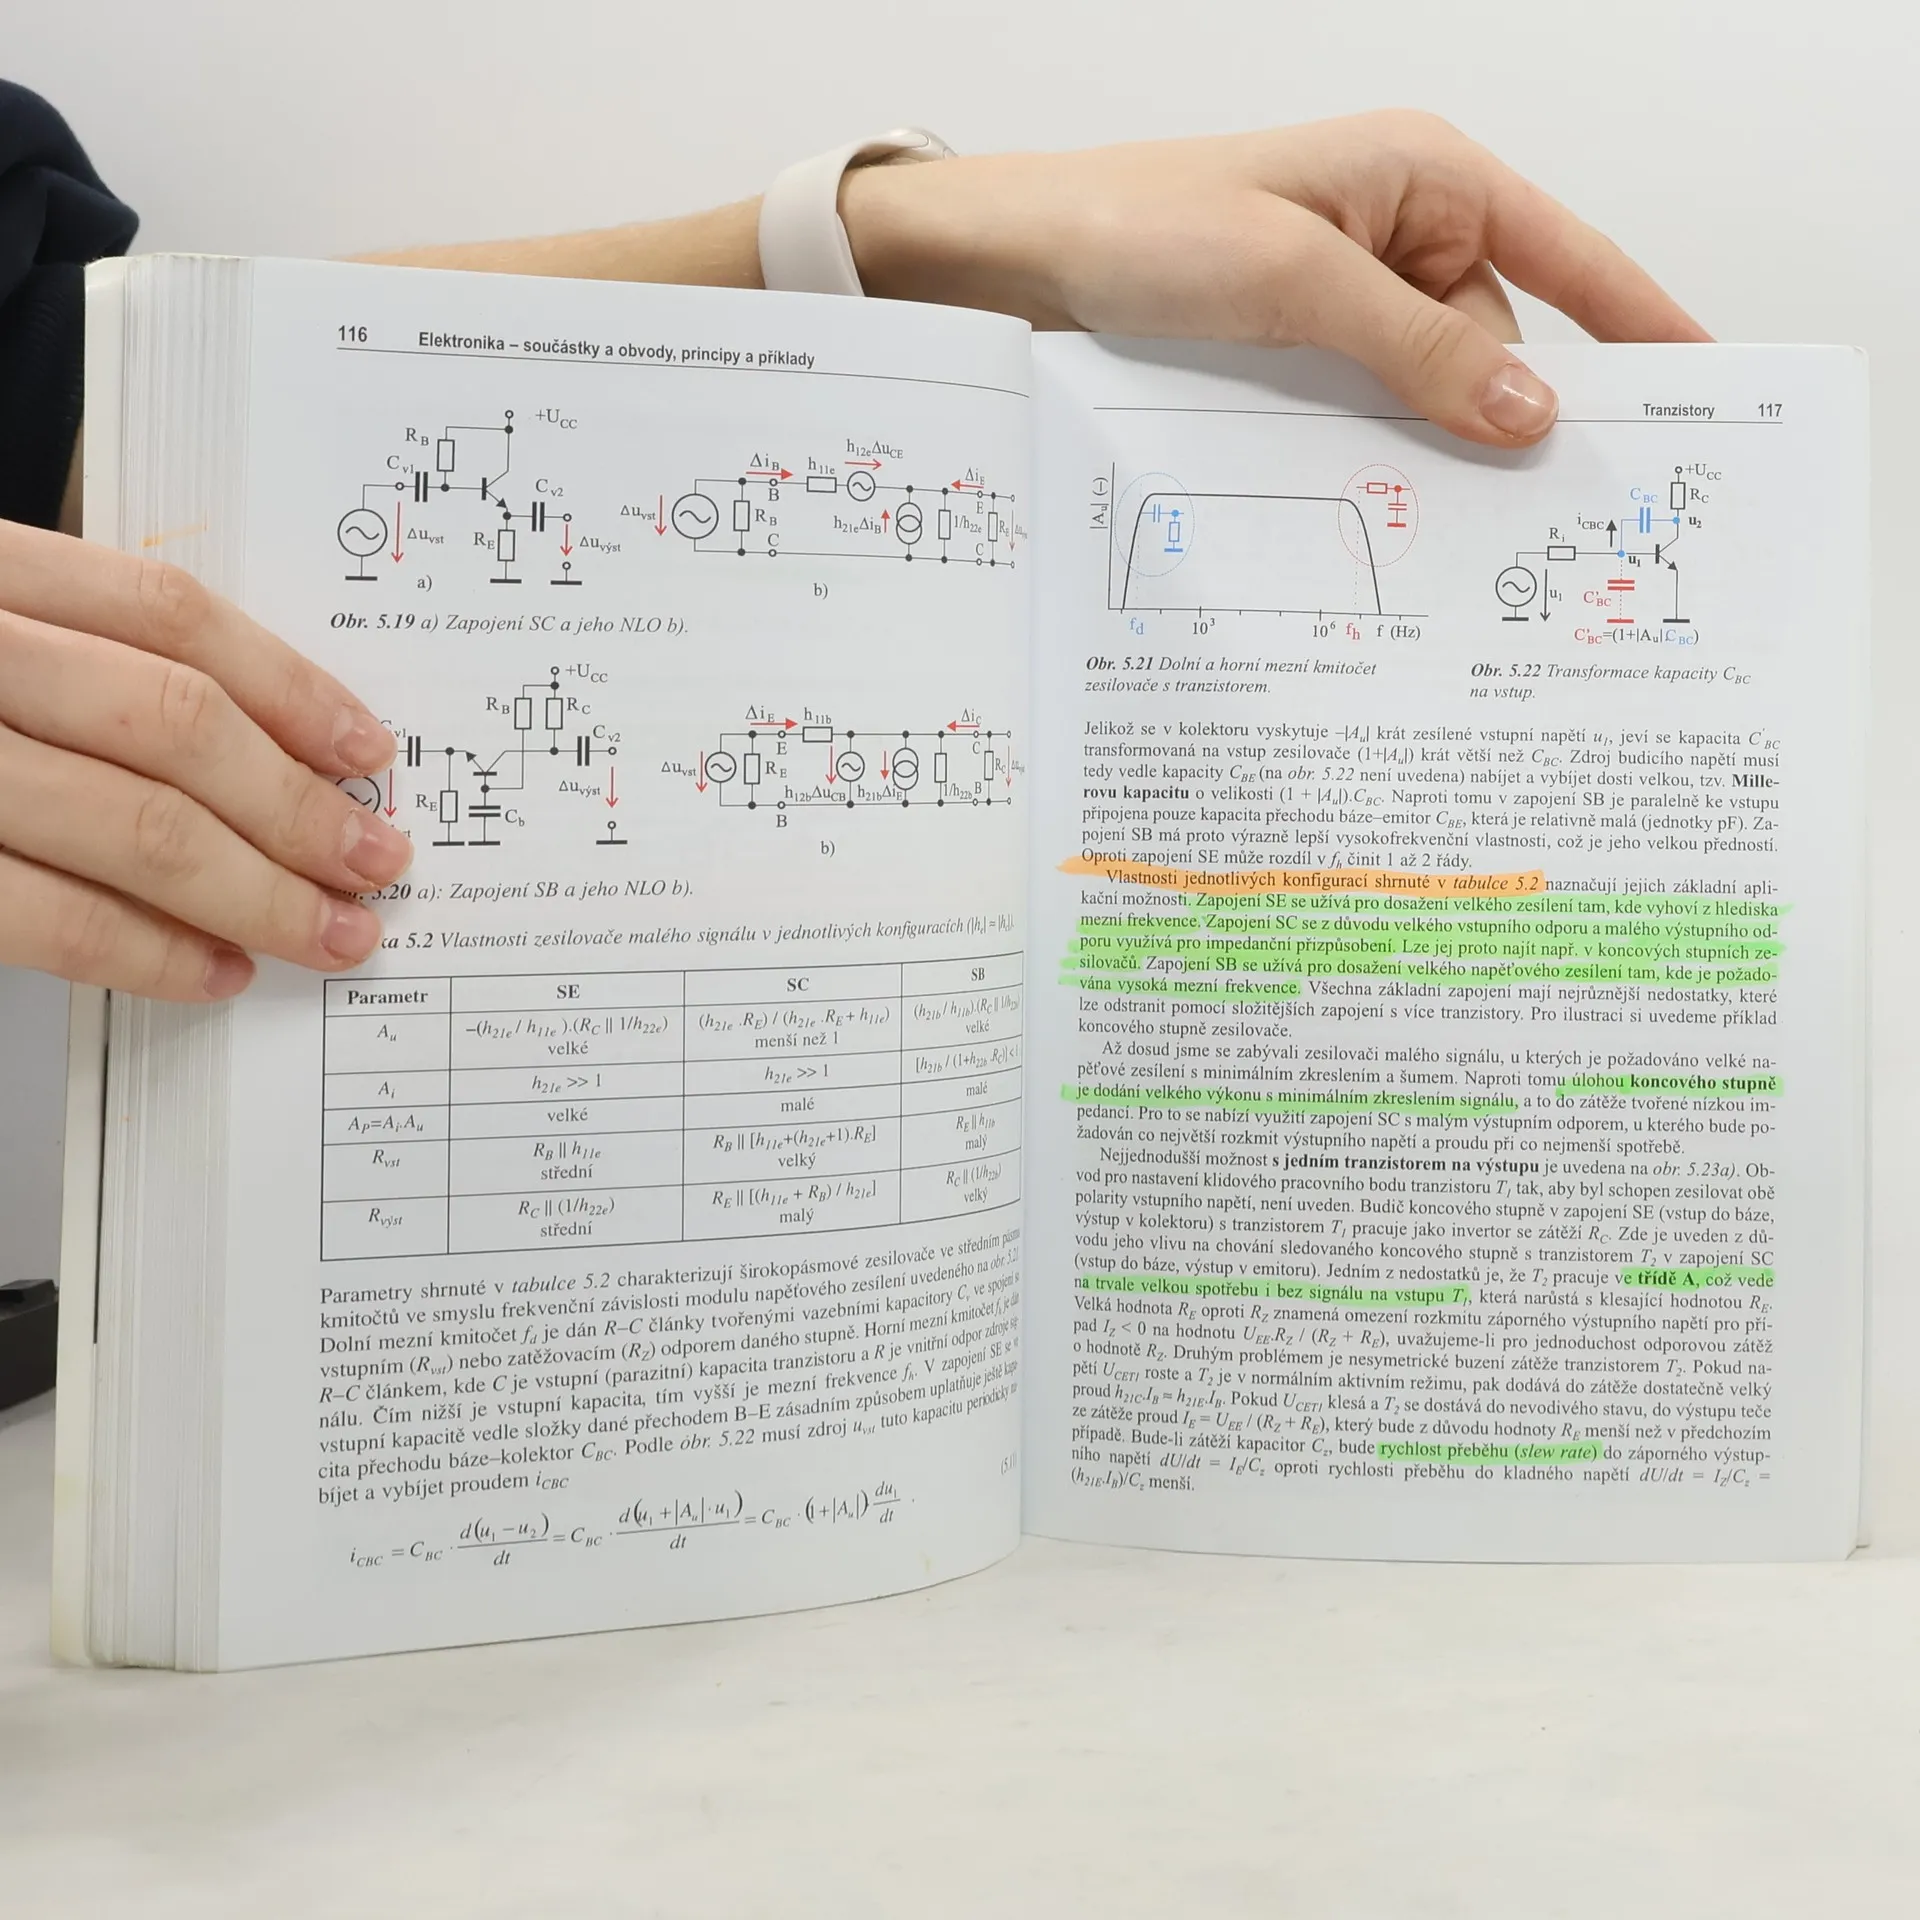 116 Elektronika – součástky a obvody, principy a příklady
+UCC
RB
Cv1
Cv2
Δuvst
RE
Δuvýst
a)
ΔiB
h11e
h12eΔuCE
ΔiE
B
E
Δuvst
RB
h21eΔiB
1/h22e
RE
C
C
b)
Obr. 5.19 a) Zapojení SC a jeho NLO b).
+UCC
RB
RC
Cv2
RE
Cb
Δuvýst
ΔiE
h11b
ΔiC
E
C
Δuvst
RE
h12bΔuCB
h21bΔiE
1/h22b
RC
B
B
b)
5.20 a): Zapojení SB a jeho NLO b).
5.2 Vlastnosti zesilovače malého signálu v jednotlivých konfiguracích (|he| = |hc|).
Parametr SE SC SB
Au –(h21e / h11e ).(RC || 1/h22e) (h21e .RE) / (h21e .RE + h11e) (h21b / h11b).(RC || 1/h22b)
velké menší než 1 velké
Ai h21e >> 1 h21e >> 1 [h21b / (1+h22b .RC)] < 1
malé
AP=Ai.Au velké malé
Rvst RB || h11e RB || [h11e+(h21e+1).RE] RE || h11b
střední velký malý
Rvýst RC || (1/h22e) RE || [(h11e + RB) / h21e] RC || (1/h22b)
střední malý velký
Parametry shrnuté v tabulce 5.2 charakterizují širokopásmové zesilovače ve středním pásmu
kmitočtů ve smyslu frekvenční závislosti modulu napěťového zesílení uvedeného na obr. 5.21.
Dolní mezní kmitočet fd je dán R–C články tvořenými vazebními kapacitory Cv ve spojení s
vstupním (Rvst) nebo zatěžovacím (RZ) odporem daného stupně. Horní mezní kmitočet fh je dán
R–C článkem, kde C je vstupní (parazitní) kapacita tranzistoru a R je vnitřní odpor zdroje sig-
nálu. Čím nižší je vstupní kapacita, tím vyšší je mezní frekvence fh. V zapojení SE se ve
vstupní kapacitě vedle složky dané přechodem B–E zásadním způsobem uplatňuje ještě kapa-
cita přechodu báze–kolektor CBC. Podle obr. 5.22 musí zdroj uvst tuto kapacitu periodicky
bíjet a vybíjet proudem iCBC
iCBC = CBC · d(u1 – u2)/dt = CBC · d(u1 + |Au| · u1)/dt = CBC · (1+|Au|) du1/dt .
Tranzistory 117
|Au| (–)
fd
10³
10⁶
fh
f (Hz)
Obr. 5.21 Dolní a horní mezní kmitočet
zesilovače s tranzistorem.
+UCC
CBC
RC
iCBC
u2
Ri
u1
u1
C'BC
C'BC=(1+|Au|CBC)
Obr. 5.22 Transformace kapacity CBC
na vstup.
Jelikož se v kolektoru vyskytuje –|Au| krát zesílené vstupní napětí u1, jeví se kapacita C'BC
transformovaná na vstup zesilovače (1+|Au|) krát větší než CBC. Zdroj budicího napětí musí
tedy vedle kapacity CBE (na obr. 5.22 není uvedena) nabíjet a vybíjet dosti velkou, tzv. Mille-
rovu kapacitu o velikosti (1 + |Au|).CBC. Naproti tomu v zapojení SB je paralelně ke vstupu
připojena pouze kapacita přechodu báze–emitor CBE, která je relativně malá (jednotky pF). Za-
pojení SB má proto výrazně lepší vysokofrekvenční vlastnosti, což je jeho velkou předností.
Oproti zapojení SE může rozdíl v fh činit 1 až 2 řády.
Vlastnosti jednotlivých konfigurací shrnuté v tabulce 5.2 naznačují jejich základní apli-
kační možnosti. Zapojení SE se užívá pro dosažení velkého zesílení tam, kde vyhoví z hlediska
mezní frekvence. Zapojení SC se z důvodu velkého vstupního odporu a malého výstupního od-
poru využívá pro impedanční přizpůsobení. Lze jej proto najít např. v koncových stupních ze-
silovačů. Zapojení SB se užívá pro dosažení velkého napěťového zesílení tam, kde je požado-
vána vysoká mezní frekvence. Všechna základní zapojení mají nejrůznější nedostatky, které
lze odstranit pomocí složitějších zapojení s více tranzistory. Pro ilustraci si uvedeme příklad
koncového stupně zesilovače.
Až dosud jsme se zabývali zesilovači malého signálu, u kterých je požadováno velké na-
pěťové zesílení s minimálním zkreslením a šumem. Naproti tomu úlohou koncového stupně
je dodání velkého výkonu s minimálním zkreslením signálu, a to do zátěže tvořené nízkou im-
pedancí. Pro to se nabízí využití zapojení SC s malým výstupním odporem, u kterého bude po-
žadován co největší rozkmit výstupního napětí a proudu při co nejmenší spotřebě.
Nejjednodušší možnost s jedním tranzistorem na výstupu je uvedena na obr. 5.23a). Ob-
vod pro nastavení klidového pracovního bodu tranzistoru T1 tak, aby byl schopen zesilovat obě
polarity vstupního napětí, není uveden. Budič koncového stupně v zapojení SE (vstup do báze,
výstup v kolektoru) s tranzistorem T1 pracuje jako invertor se zátěží RC. Zde je uveden z dů-
vodu jeho vlivu na chování sledovaného koncového stupně s tranzistorem T2 v zapojení SC
(vstup do báze, výstup v emitoru). Jedním z nedostatků je, že T2 pracuje ve třídě A, což vede
na trvale velkou spotřebu i bez signálu na vstupu T1, která narůstá s klesající hodnotou RE.
Velká hodnota RE oproti RZ znamená omezení rozkmitu záporného výstupního napětí pro pří-
pad IZ < 0 na hodnotu UEE.RZ / (RZ + RE), uvažujeme-li pro jednoduchost odporovou zátěž
o hodnotě RZ. Druhým problémem je nesymetrické buzení zátěže tranzistorem T2. Pokud na-
pětí UCET1 roste a T2 je v normálním aktivním režimu, pak dodává do zátěže dostatečně velký
proud h21C.IB = h21E.IB. Pokud UCET1 klesá a T2 se dostává do nevodivého stavu, do výstupu teče
ze zátěže proud IE = UEE / (RZ + RE), který bude z důvodu hodnoty RE menší než v předchozím
případě. Bude-li zátěží kapacitor Cz, bude rychlost přeběhu (slew rate) do záporného výstup-
ního napětí dU/dt = IE/Cz oproti rychlosti přeběhu do kladného napětí dU/dt = IZ/Cz =
(h21E.IB)/Cz menší.